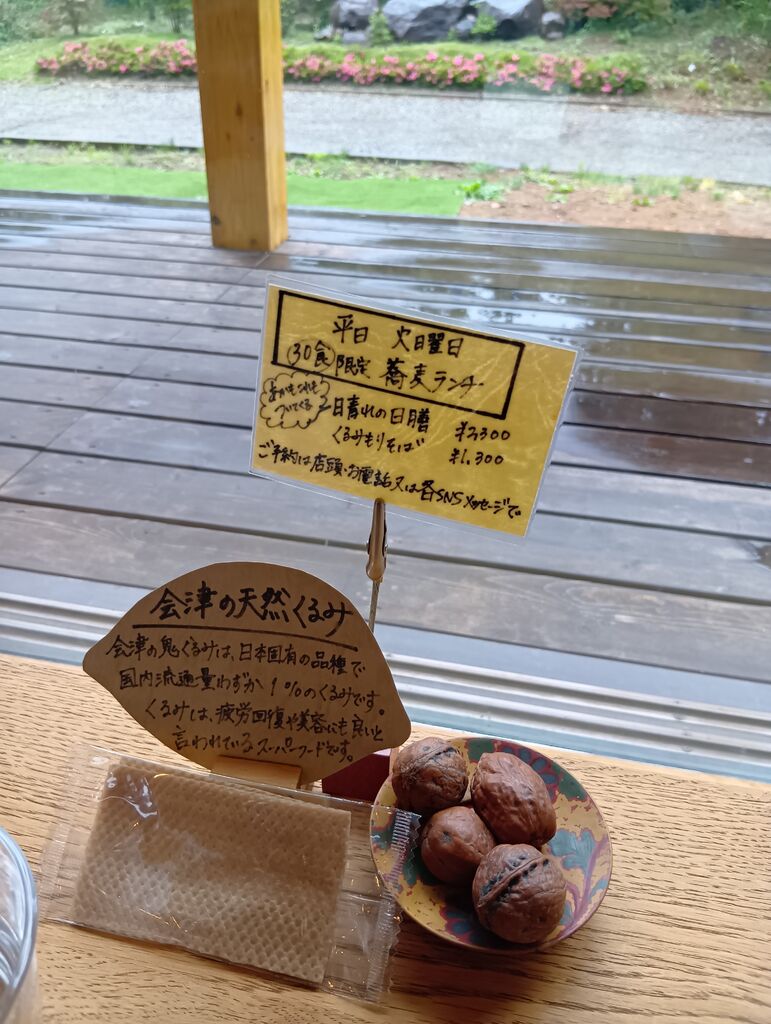 平日 火曜日
30食限定 蕎麦ランチ
あれもこれも
ついてくる
晴れの日膳 ¥2,300
くるみもりそば ¥1,300
ご予約は店頭・お電話又は各SNSメッセージで
会津の天然くるみ
会津の鬼ぐるみは、日本固有の品種で
国内流通量わずか1%のくるみです。
くるみは、疲労回復や美容にも良いと
言われているスーパーフードです。